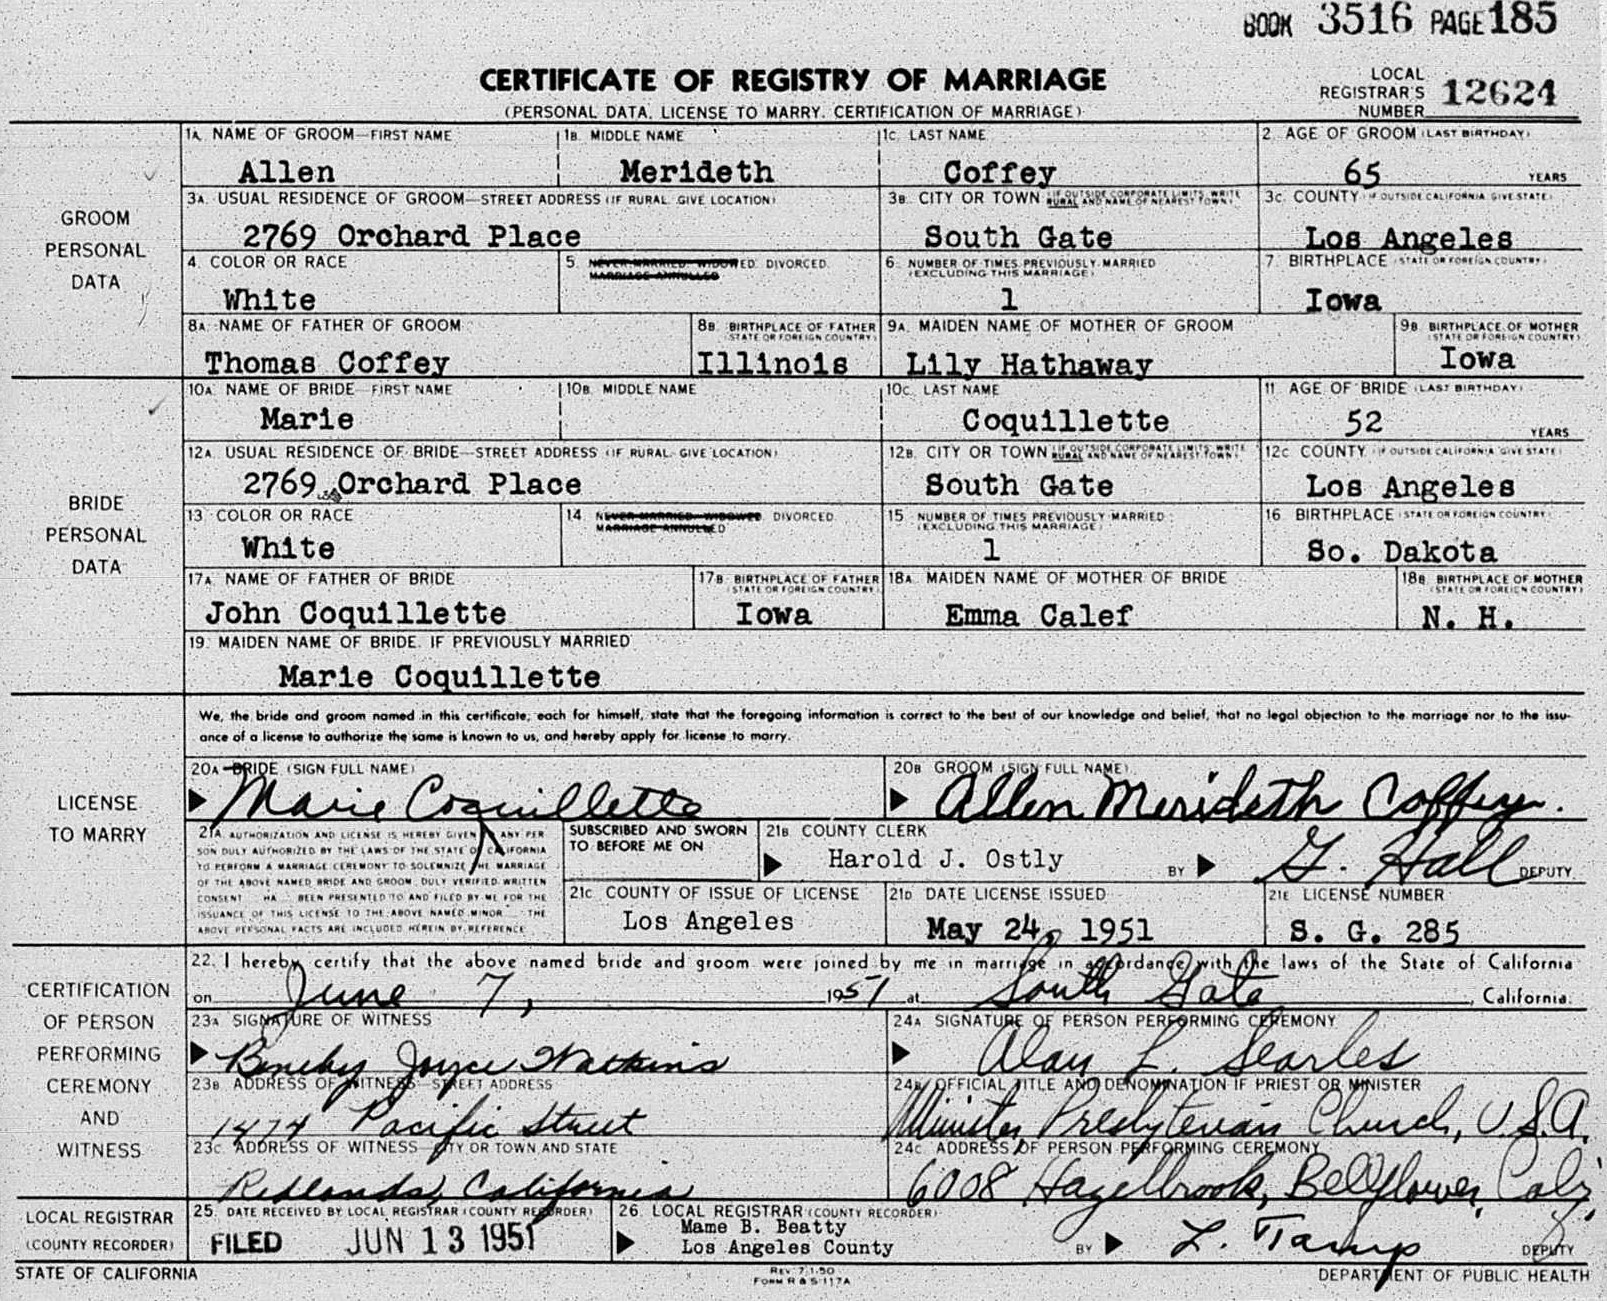 BOOK 3516 PAGE 185
CERTIFICATE OF REGISTRY OF MARRIAGE
(PERSONAL DATA, LICENSE TO MARRY, CERTIFICATION OF MARRIAGE)
LOCAL REGISTRAR'S NUMBER 12624
GROOM PERSONAL DATA
1A. NAME OF GROOM—FIRST NAME 1B. MIDDLE NAME 1C. LAST NAME 2. AGE OF GROOM (LAST BIRTHDAY)
Allen Merideth Coffey 65 YEARS
3A. USUAL RESIDENCE OF GROOM—STREET ADDRESS (IF RURAL, GIVE LOCATION) 3B. CITY OR TOWN (IF OUTSIDE CORPORATE LIMITS, WRITE RURAL AND NAME OF NEAREST TOWN) 3C. COUNTY (IF OUTSIDE CALIFORNIA GIVE STATE)
2769 Orchard Place South Gate Los Angeles
4. COLOR OR RACE 5. NEVER MARRIED, WIDOWED, DIVORCED, MARRIAGE ANNULLED 6. NUMBER OF TIMES PREVIOUSLY MARRIED (EXCLUDING THIS MARRIAGE) 7. BIRTHPLACE (STATE OR FOREIGN COUNTRY)
White 1 Iowa
8A. NAME OF FATHER OF GROOM 8B. BIRTHPLACE OF FATHER (STATE OR FOREIGN COUNTRY) 9A. MAIDEN NAME OF MOTHER OF GROOM 9B. BIRTHPLACE OF MOTHER (STATE OR FOREIGN COUNTRY)
Thomas Coffey Illinois Lily Hathaway Iowa
BRIDE PERSONAL DATA
10A. NAME OF BRIDE—FIRST NAME 10B. MIDDLE NAME 10C. LAST NAME 11. AGE OF BRIDE (LAST BIRTHDAY)
Marie Coquillette 52 YEARS
12A. USUAL RESIDENCE OF BRIDE—STREET ADDRESS (IF RURAL, GIVE LOCATION) 12B. CITY OR TOWN (IF OUTSIDE CORPORATE LIMITS, WRITE RURAL AND NAME OF NEAREST TOWN) 12C. COUNTY (IF OUTSIDE CALIFORNIA GIVE STATE)
2769 Orchard Place South Gate Los Angeles
13. COLOR OR RACE 14. NEVER MARRIED, WIDOWED, DIVORCED, MARRIAGE ANNULLED 15. NUMBER OF TIMES PREVIOUSLY MARRIED (EXCLUDING THIS MARRIAGE) 16. BIRTHPLACE (STATE OR FOREIGN COUNTRY)
White 1 So. Dakota
17A. NAME OF FATHER OF BRIDE 17B. BIRTHPLACE OF FATHER (STATE OR FOREIGN COUNTRY) 18A. MAIDEN NAME OF MOTHER OF BRIDE 18B. BIRTHPLACE OF MOTHER (STATE OR FOREIGN COUNTRY)
John Coquillette Iowa Emma Calef N. H.
19. MAIDEN NAME OF BRIDE, IF PREVIOUSLY MARRIED
Marie Coquillette
LICENSE TO MARRY
We, the bride and groom named in this certificate, each for himself, state that the foregoing information is correct to the best of our knowledge and belief, that no legal objection to the marriage nor to the issu-
ance of a license to authorize the same is known to us, and hereby apply for license to marry.
20A BRIDE (SIGN FULL NAME) 20B GROOM (SIGN FULL NAME)
Marie Coquillette Allen Merideth Coffey.
21A. AUTHORIZATION AND LICENSE IS HEREBY GIVEN ANY PER
SON DULY AUTHORIZED BY THE LAWS OF THE STATE OF CALIFORNIA
TO PERFORM A MARRIAGE CEREMONY TO SOLEMNIZE THE MARRIAGE
OF THE ABOVE NAMED BRIDE AND GROOM, DULY VERIFIED WRITTEN
CONSENT HA BEEN PRESENTED TO AND FILED BY ME FOR THE
ISSUANCE OF THIS LICENSE TO THE ABOVE NAMED MINOR THE
ABOVE PERSONAL FACTS ARE INCLUDED HEREIN BY REFERENCE
SUBSCRIBED AND SWORN TO BEFORE ME ON
21B COUNTY CLERK
Harold J. Ostly BY G. Hall DEPUTY
21C COUNTY OF ISSUE OF LICENSE 21D DATE LICENSE ISSUED 21E LICENSE NUMBER
Los Angeles May 24, 1951 S. G. 285
CERTIFICATION OF PERSON PERFORMING CEREMONY AND WITNESS
22. I hereby certify that the above named bride and groom were joined by me in marriage in accordance with the laws of the State of California
on June 7, 1951 at South Gate, California.
23A SIGNATURE OF WITNESS 24A SIGNATURE OF PERSON PERFORMING CEREMONY
Joyce Watkins Alan L. Searles
23B ADDRESS OF WITNESS—STREET ADDRESS 24B OFFICIAL TITLE AND DENOMINATION IF PRIEST OR MINISTER
1474 Pacific Street Minister, Presbyterian Church, U.S.A.
23C ADDRESS OF WITNESS—CITY OR TOWN AND STATE 24C ADDRESS OF PERSON PERFORMING CEREMONY
Redlands, California 6008 Hazelbrook, Bellflower, Calif.
LOCAL REGISTRAR (COUNTY RECORDER)
25. DATE RECEIVED BY LOCAL REGISTRAR (COUNTY RECORDER) 26. LOCAL REGISTRAR (COUNTY RECORDER)
FILED JUN 13 1951 Mame B. Beatty
Los Angeles County BY L. DEPUTY
STATE OF CALIFORNIA REV. 7-1-50 FORM R & S 117A DEPARTMENT OF PUBLIC HEALTH